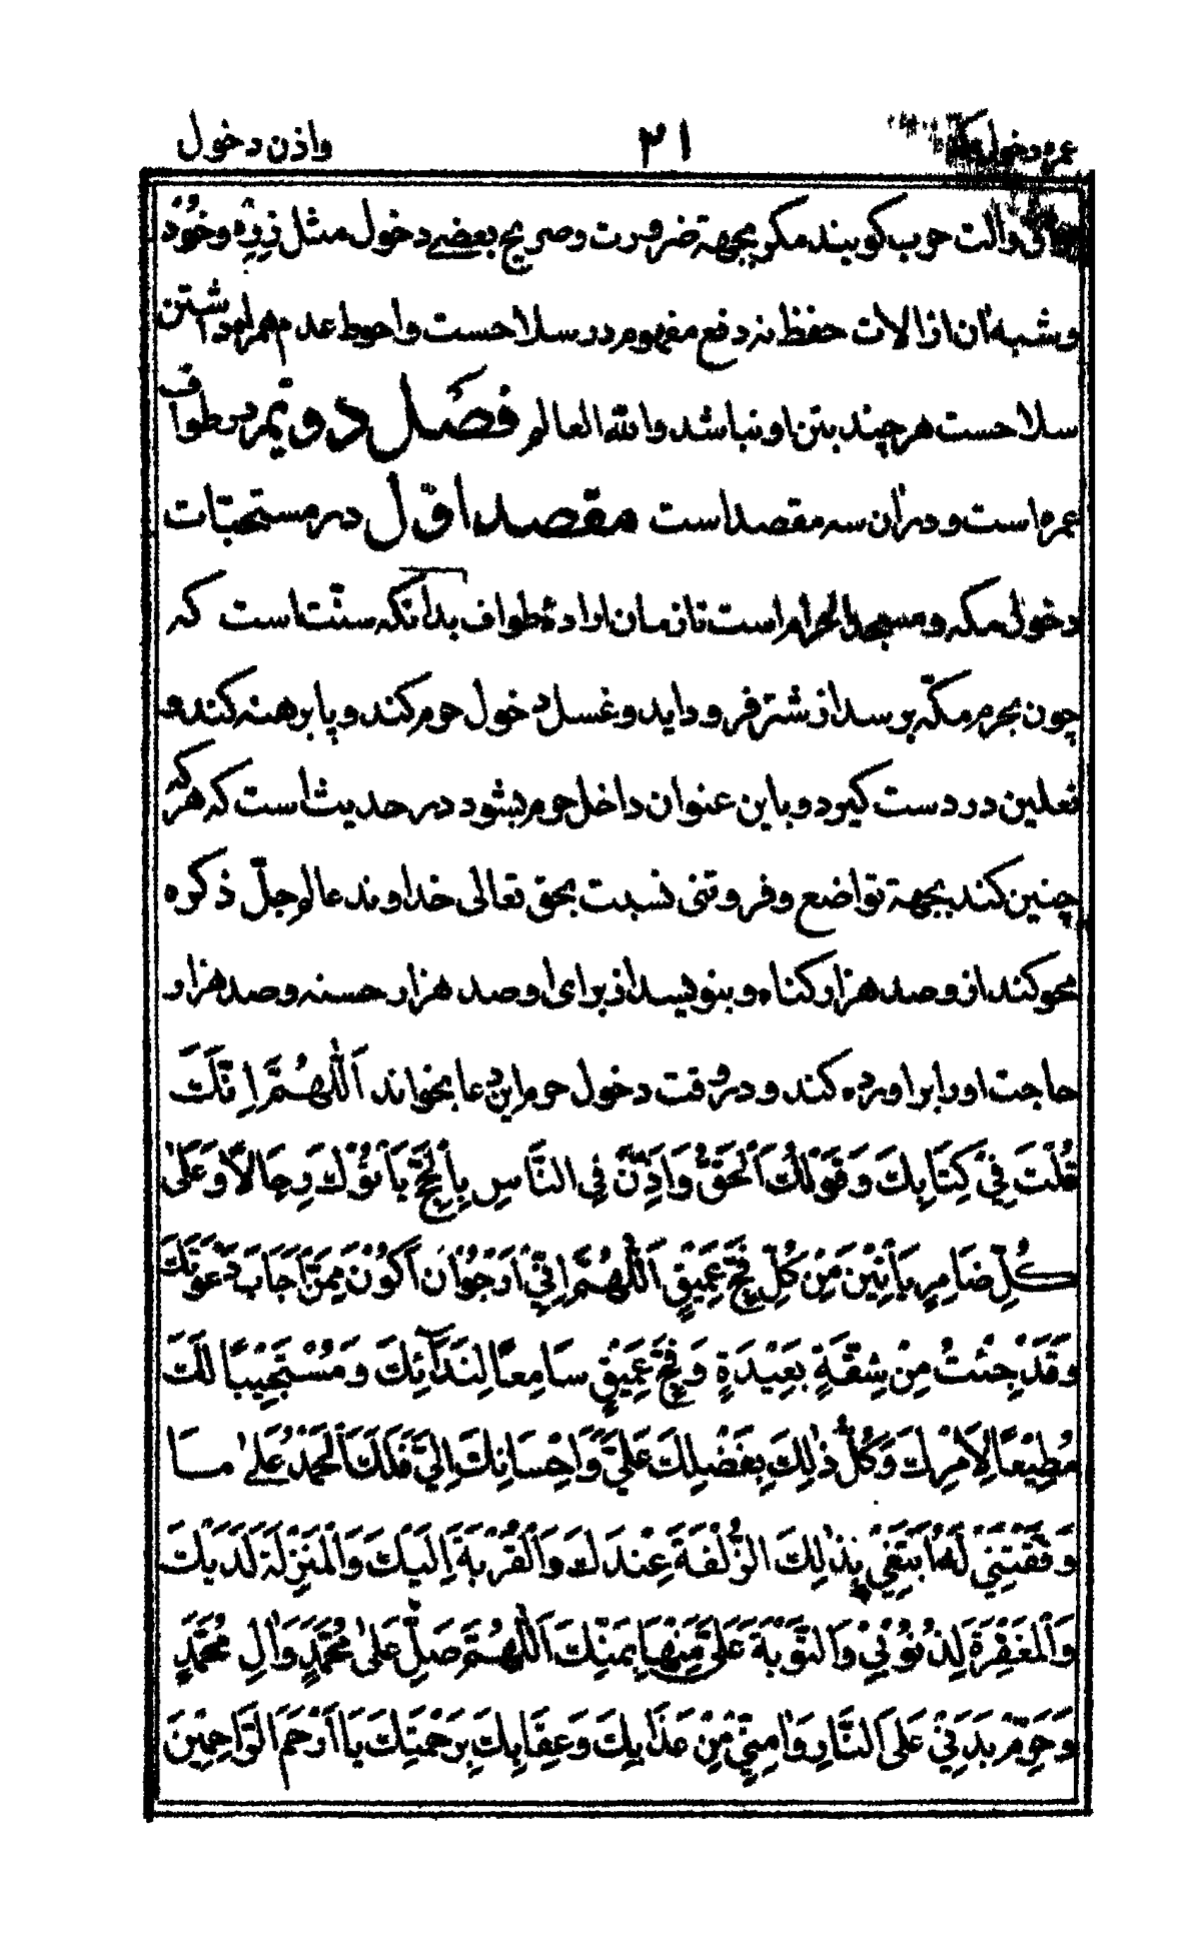 عمره دخول ۲۱ واذن دخول
والت حرب كويند مكر بجهة ضرورت وصريح بعضے دخول مثل زره وخود
وشبه ان از الات حفظ نه دفع مفهوم در سلاحست واحوط عدم همراه داشتن
سلاحست هر چند بتن او نباشد والله العالم فصل دويم در طواف
عمره است و در ان سه مقصد است مقصد اول در مستحبات
دخول مكه و مسجد الحرام است تا زمان اراده طواف بدانكه سنت است كه
چون بحرم مكّه برسد از شتر فرود ايد و غسل دخول حرم كند و پا برهنه كند و
نعلين در دست كيرد و باين عنوان داخل حرم بشود در حديث است كه هر كه
چنين كند بجهة تواضع و فروتنى نسبت بحق تعالى خداوند عالم جلّ ذكره
محو كند از و صد هزار كناه و بنويسد از براى او صد هزار حسنه و صد هزار
حاجت او را براورده كند و در وقت دخول حرم اين دعا بخواند اَللّٰهُمَّ اِنَّكَ
قُلْتَ فِيْ كِتَابِكَ وَقَوْلُكَ اَلْحَقُّ وَاَذِّنْ فِي النَّاسِ بِالْحَجِّ يَاْتُوْكَ رِجَالًا وَعَلٰى
كُلِّ ضَامِرٍ يَاْتِيْنَ مِنْ كُلِّ فَجٍّ عَمِيْقٍ اَللّٰهُمَّ اِنِّيْ اَرْجُوْ اَنْ اَكُوْنَ مِمَّنْ اَجَابَ دَعْوَتَكَ
وَقَدْ جِئْتُ مِنْ شِقَّةٍ بَعِيْدَةٍ وَفَجٍّ عَمِيْقٍ سَامِعًا لِنَدَآئِكَ وَمُسْتَجِيْبًا لَكَ
مُطِيْعًا لِاَمْرِكَ وَكُلُّ ذٰلِكَ بِفَضْلِكَ عَلَيَّ وَاِحْسَانِكَ اِلَيَّ فَلَكَ اَلْحَمْدُ عَلٰى مَا
وَفَّقْتَنِيْ لَهُ اَبْتَغِيْ بِذٰلِكَ الزُّلْفَةَ عِنْدَكَ وَالْقُرْبَةَ اِلَيْكَ وَالْمَنْزِلَةَ لَدَيْكَ
وَالْمَغْفِرَةَ لِذُنُوْبِيْ وَالتَّوْبَةَ عَلَيَّ مِنْهَا بِمَنِّكَ اَللّٰهُمَّ صَلِّ عَلٰى مُحَمَّدٍ وَاٰلِ مُحَمَّدٍ
وَحَرِّمْ بَدَنِيْ عَلَى النَّارِ وَاٰمِنِّيْ مِنْ عَذَابِكَ وَعِقَابِكَ بِرَحْمَتِكَ يَا اَرْحَمَ الرَّاحِمِيْنَ